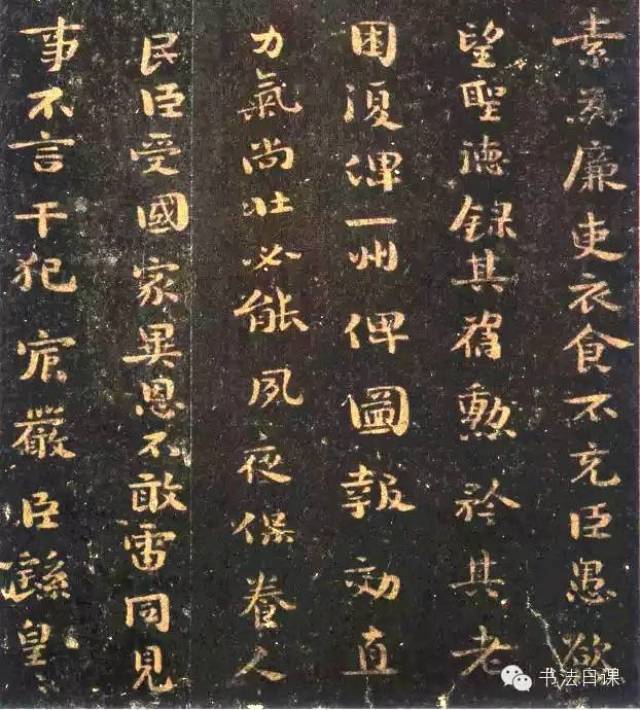 素爲廉吏衣食不充臣愚欲
望聖德録其舊勳矜其老
困復俾一州俾圖報効直
力氣尚壯必能夙夜保養人
民臣受國家異恩不敢雷同見
事不言干犯宸嚴臣繇皇
书法日课